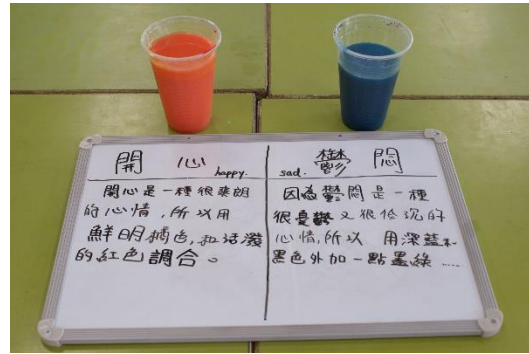 開心 happy.
開心是一種很爽朗
的心情,所以用
鮮明橘色,和活潑
的紅色調合。
sad. 鬱悶
因為鬱悶是一種
很憂鬱又很低沉的
心情,所以 用深藍和
黑色外加一點墨綠......